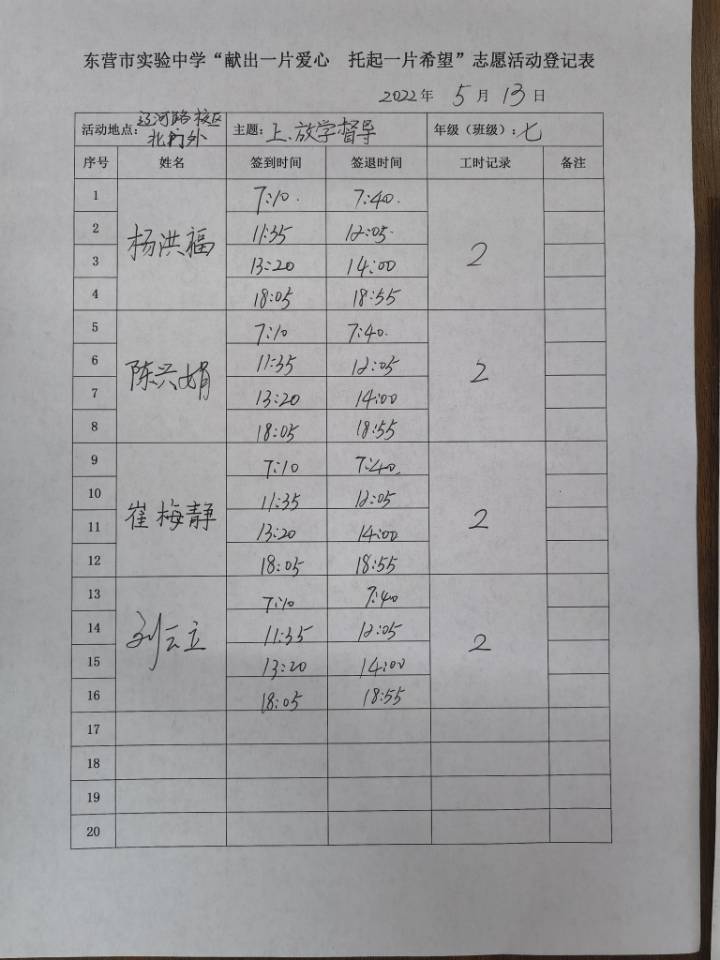 东营市实验中学“献出一片爱心 托起一片希望”志愿活动登记表
2022年 5月13日
活动地点：辽河路校区北门外 主题：上、放学督导 年级（班级）：七
序号 姓名 签到时间 签退时间 工时记录 备注
1 杨洪福 7:10 7:40 2
2 11:35 12:05
3 13:20 14:00
4 18:05 18:55
5 陈兴娟 7:10 7:40 2
6 11:35 12:05
7 13:20 14:00
8 18:05 18:55
9 崔梅静 7:10 7:40 2
10 11:35 12:05
11 13:20 14:00
12 18:05 18:55
13 刘云立 7:10 7:40 2
14 11:35 12:05
15 13:20 14:00
16 18:05 18:55
17
18
19
20